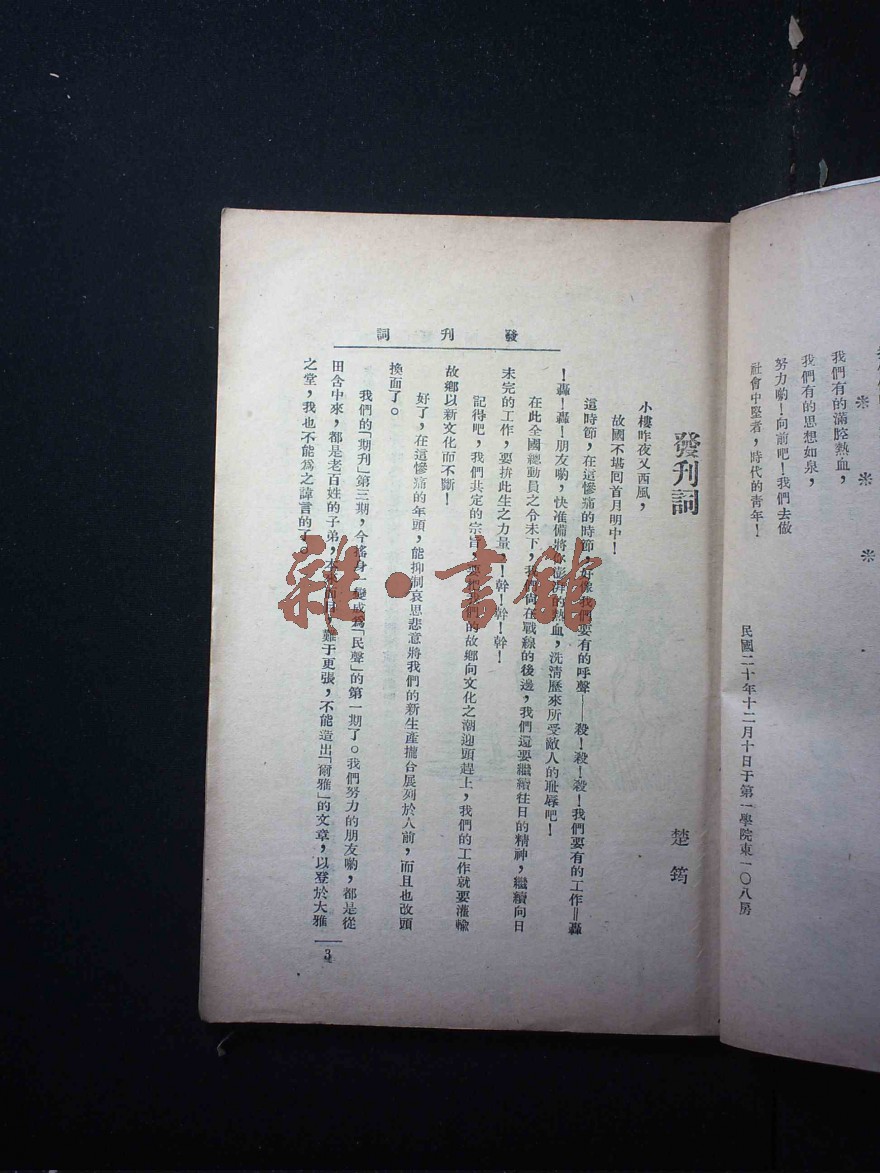 我們有的滿腔熱血，
我們有的思想如泉，
努力喲！向前吧！我們去做
社會中堅者，時代的青年！
民國二十年十二月十日于第一學院東一〇八房
發刊詞
發刊詞
楚筠
小樓昨夜又西風，
故國不堪囘首月明中！
這時節，在這慘痛的時節，好像我們要有的呼聲——殺！殺！殺！我們要有的工作＝轟
！轟！轟！朋友喲，快准備將你澎湃的熱血，洗清歷來所受敵人的耻辱吧！
在此全國總動員之令未下，我們尚在戰線的後邊，我們還要繼續往日的精神，繼續向日
未完的工作，要拚此生之力量——！幹！幹！幹！
記得吧，我們共定的宗旨，要把我們的故鄉向文化之潮迎頭趕上，我們的工作就要灌輸
故鄉以新文化而不斷！
好了，在這慘痛的年頭，能抑制哀思悲意將我們的新生產攏台展列於人前，而且也改頭
換面了。
我們的「期刊」第三期，今搖身一變成爲「民聲」的第一期了。我們努力的朋友喲，都是從
田舍中來，都是老百姓的子弟，本來面目，難于更張，不能造出「爾雅」的文章，以登於大雅
之堂，我也不能爲之諱言的了。
3
雜·書館